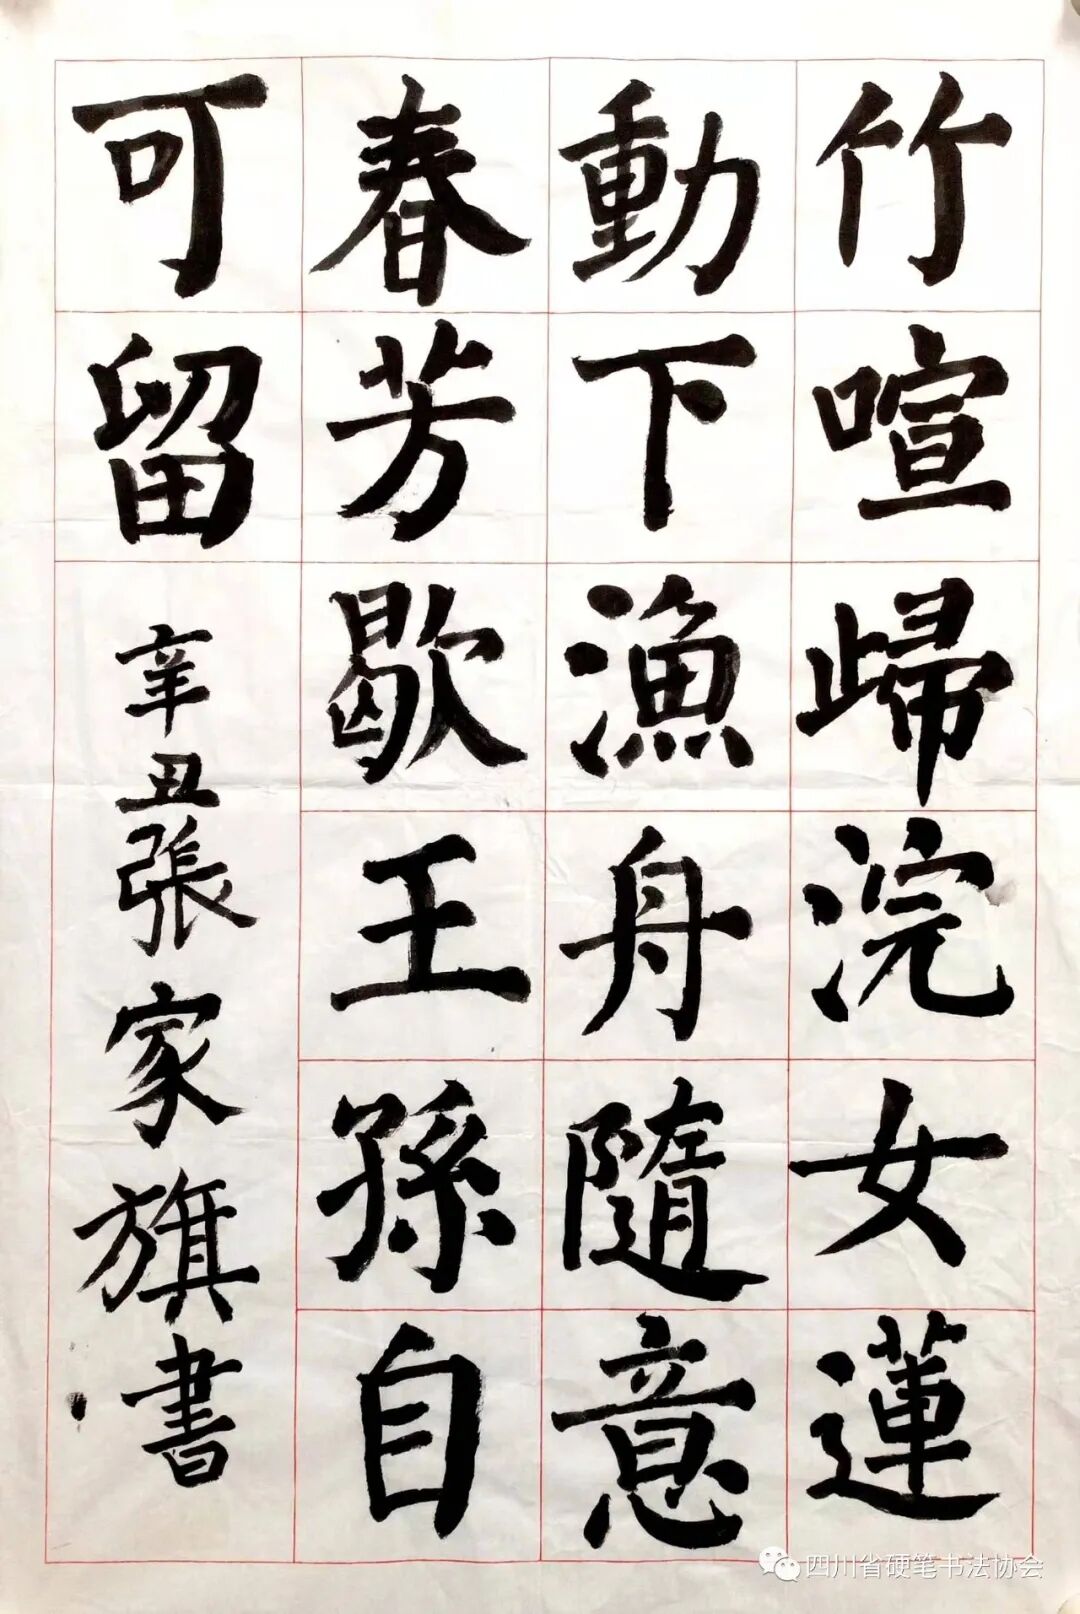 竹喧歸浣女蓮
動下漁舟隨意
春芳歇王孫自
可留
辛丑張家旗書
四川省硬笔书法协会